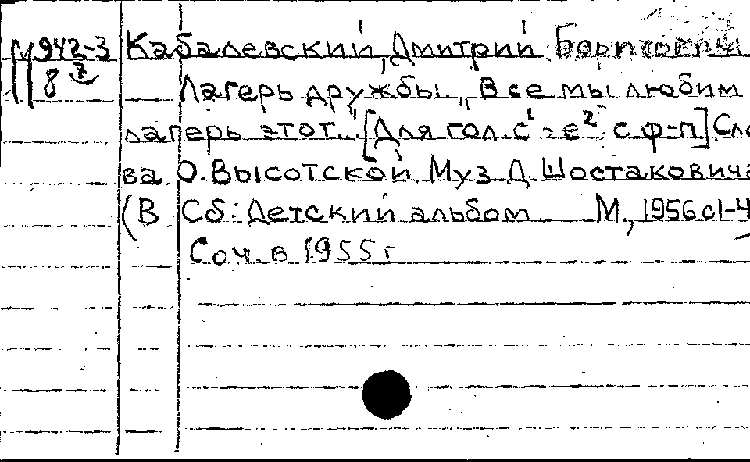 М942-3 Кабалевский, Дмитрий Борисович
8 Лагерь дружбы „Все мы любим
лагерь этот..." [Для гол. c¹-e² с ф-п] Сло
ва О. Высотской Муз Д Шостаковича
(В Сб: Детский альбом М, 1956 с1-4
Соч. в 1955 г